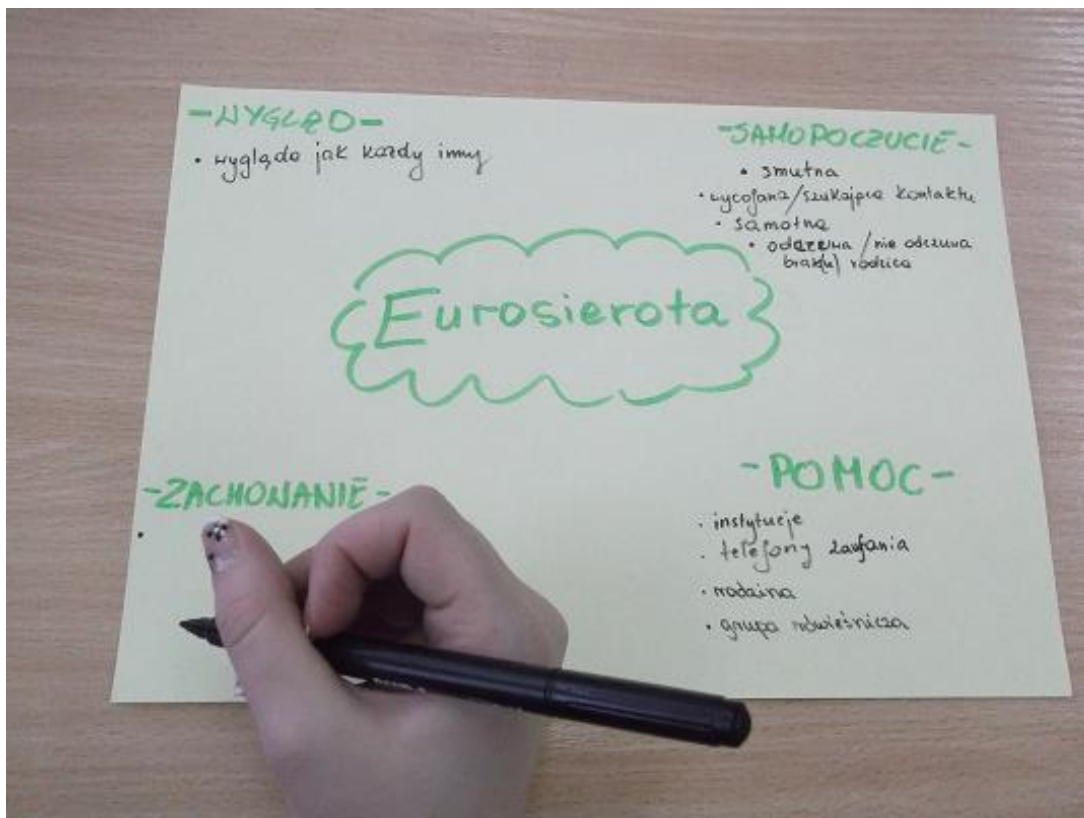 -WYGLĄD-
• wygląda jak każdy inny
-SAMOPOCZUCIE-
• smutna
• wycofana/szukająca kontaktu
• samotna
• odczuwa/nie odczuwa
brak(u) rodzica
Eurosierota
-ZACHOWANIE-
•
-POMOC-
• instytucje
• telefony zaufania
• rodzina
• grupa rówieśnicza